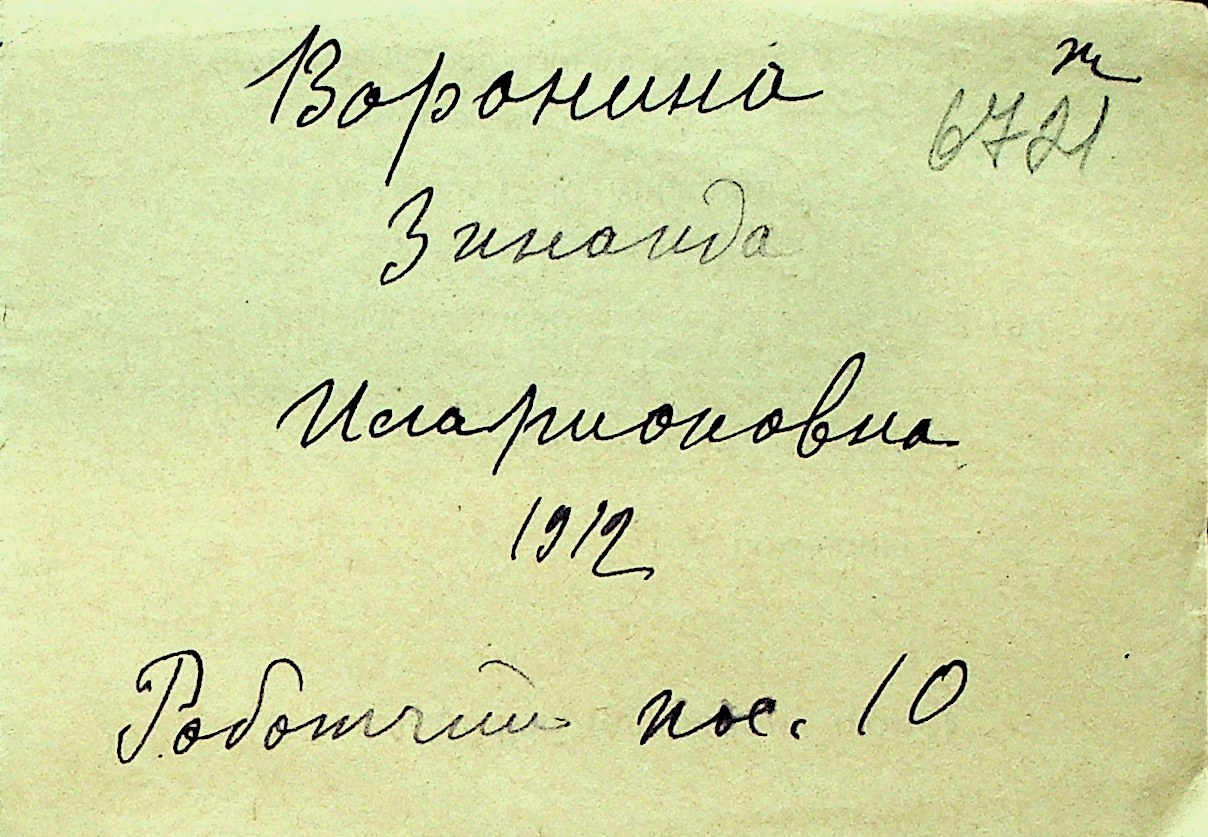 Воронина
т
6721
Зинаида
Иларионовна
1912
Работчий пос. 10